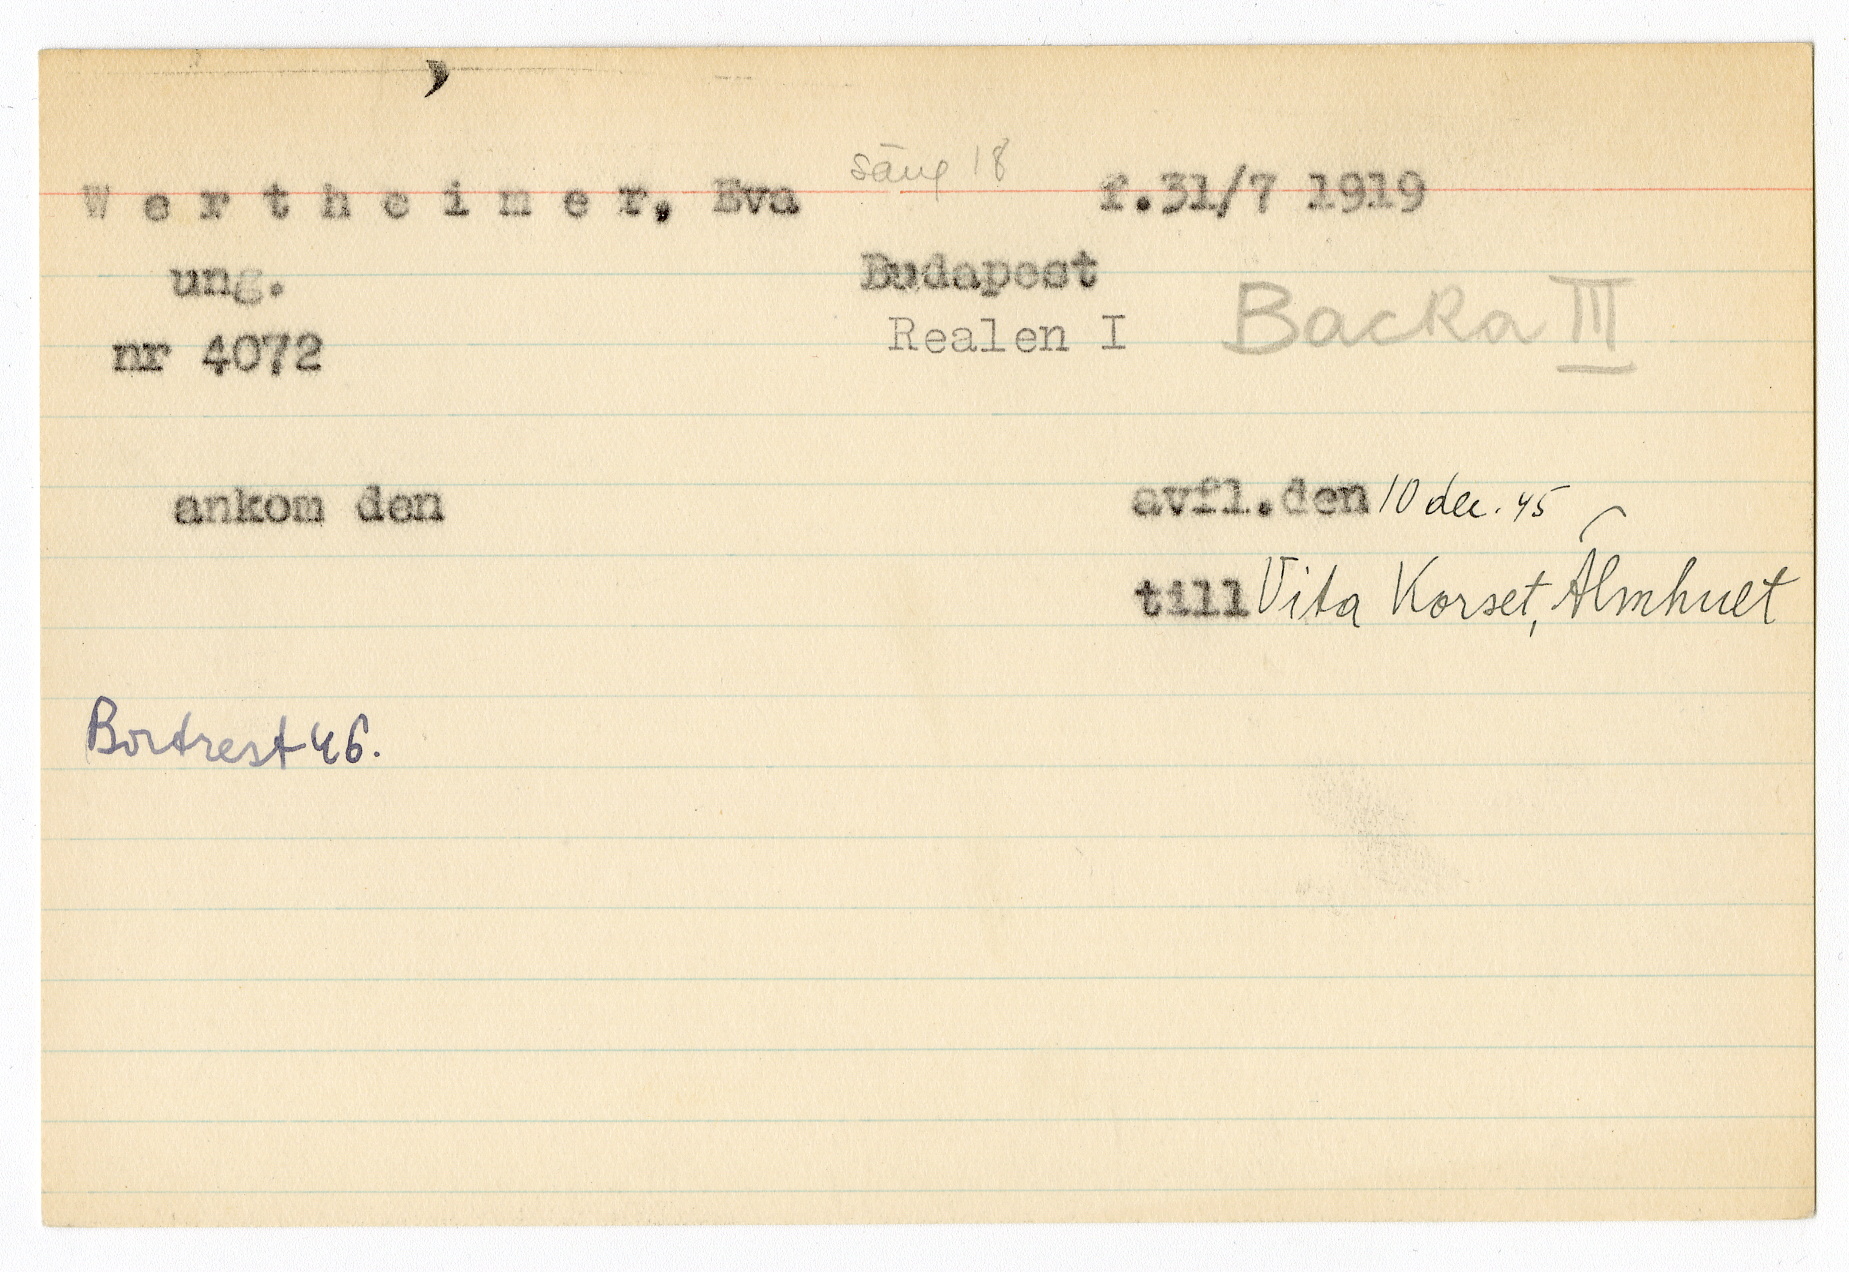 Wertheimer, Eva säng 18 f.31/7 1919
ung. Budapest
nr 4072 Realen I Backa III
ankom den avfl.den 10 dec. 45
till Vita Korset, Älmhult
Bortrest 46.